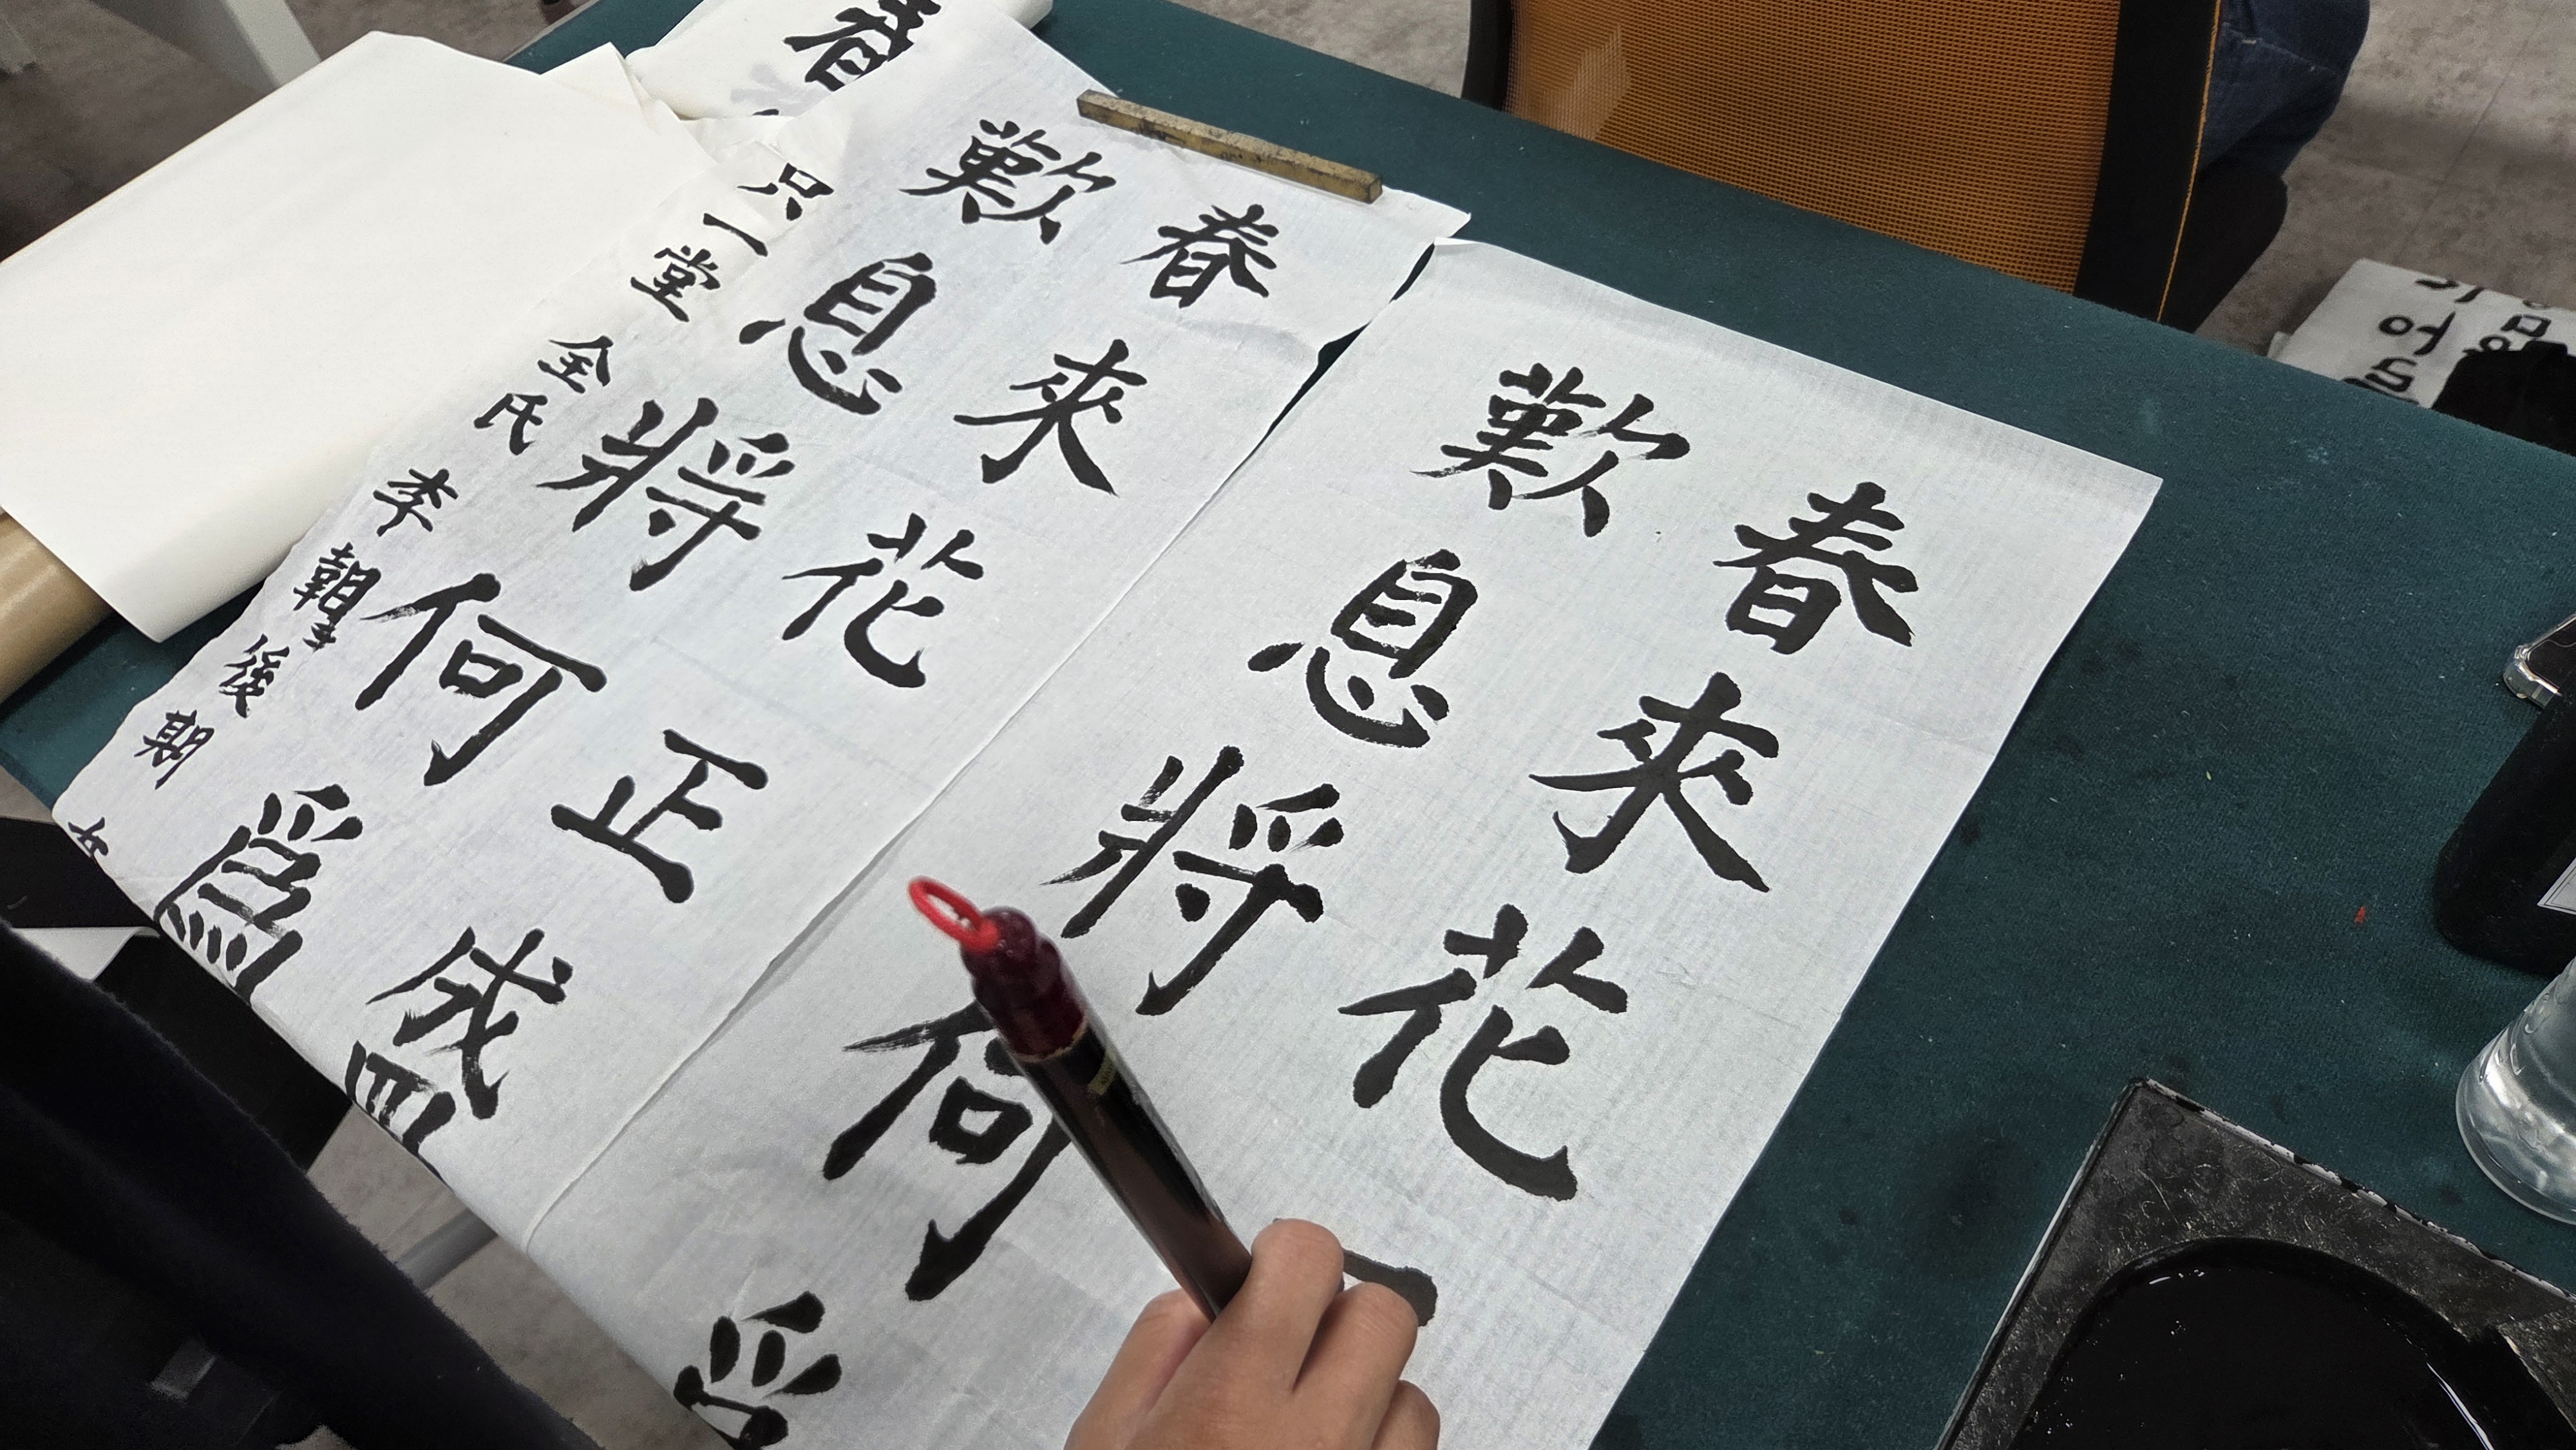 春來花
歎息將何
春來花正盛
歎息將何爲
只一堂 全氏 李朝後期 女
春
어